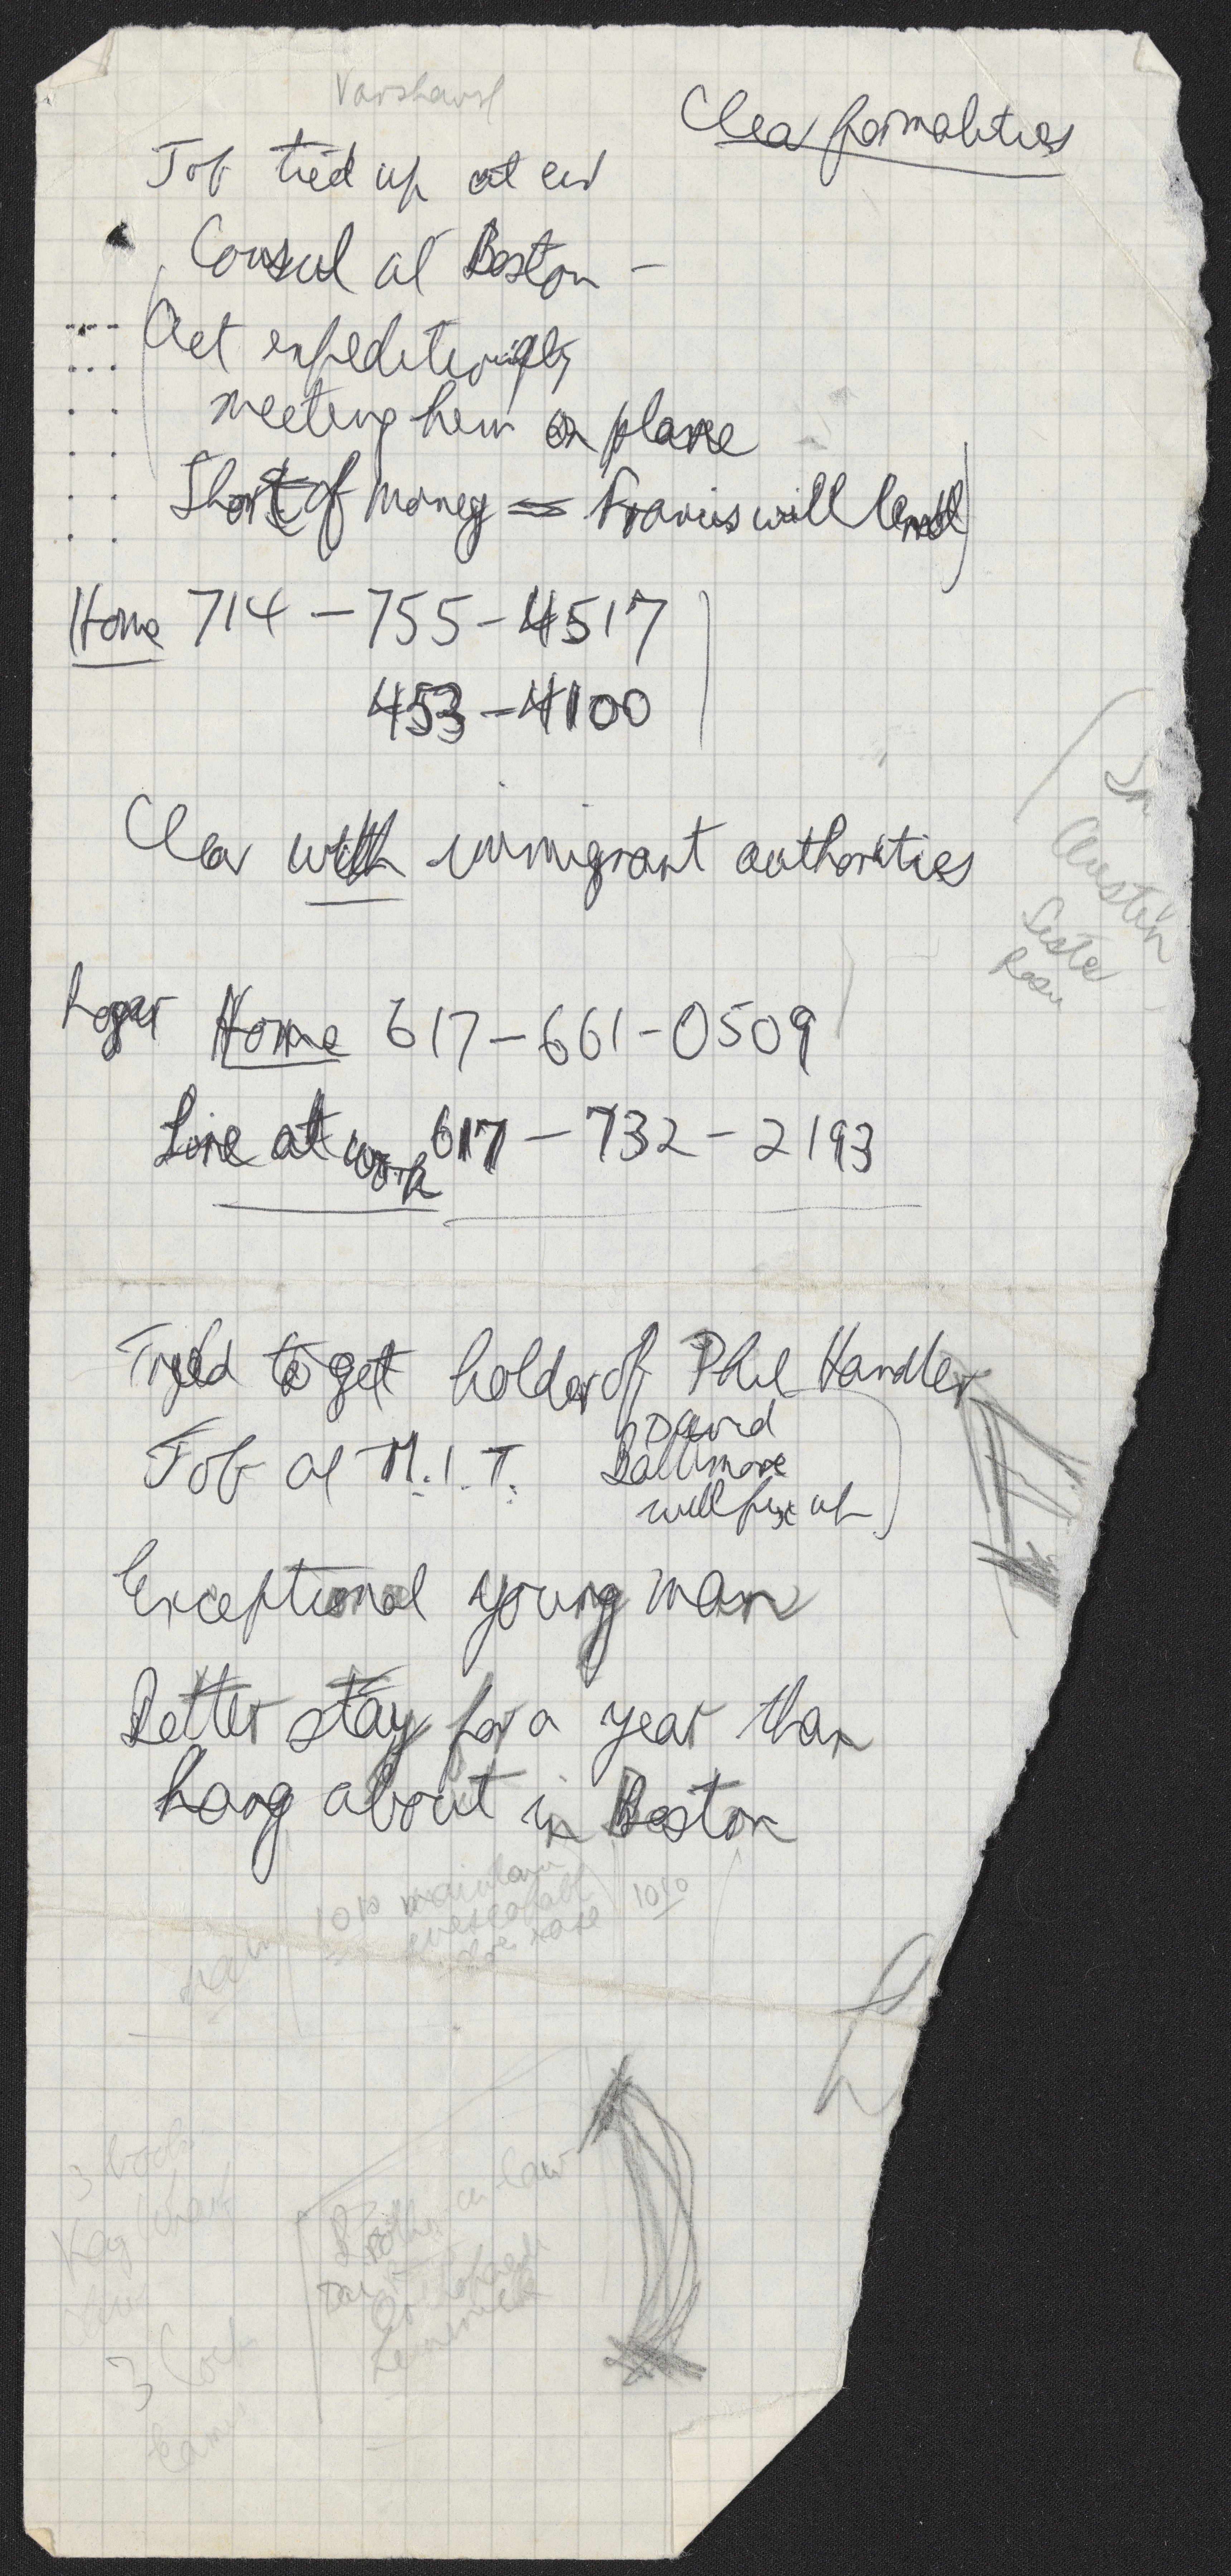 Varshavsk
Clear formalities
Job tied up at end
Consul at Boston –
Act expeditiously
meeting him on plane
Short of money = Francis will lend
Home 714 – 755 – 4517
453 – 4100
Clear with immigrant authorities
In
Austin
Sister
Roger Home 617 – 661 – 0509
Line at work 617 – 732 – 2193
Tried to get holder of Phil Handler
David
Job at M.I.T. Baltimore
will fix up
Exceptional young man
Better stay for a year than
hang about in Boston
10 10
Brother in law
3
3